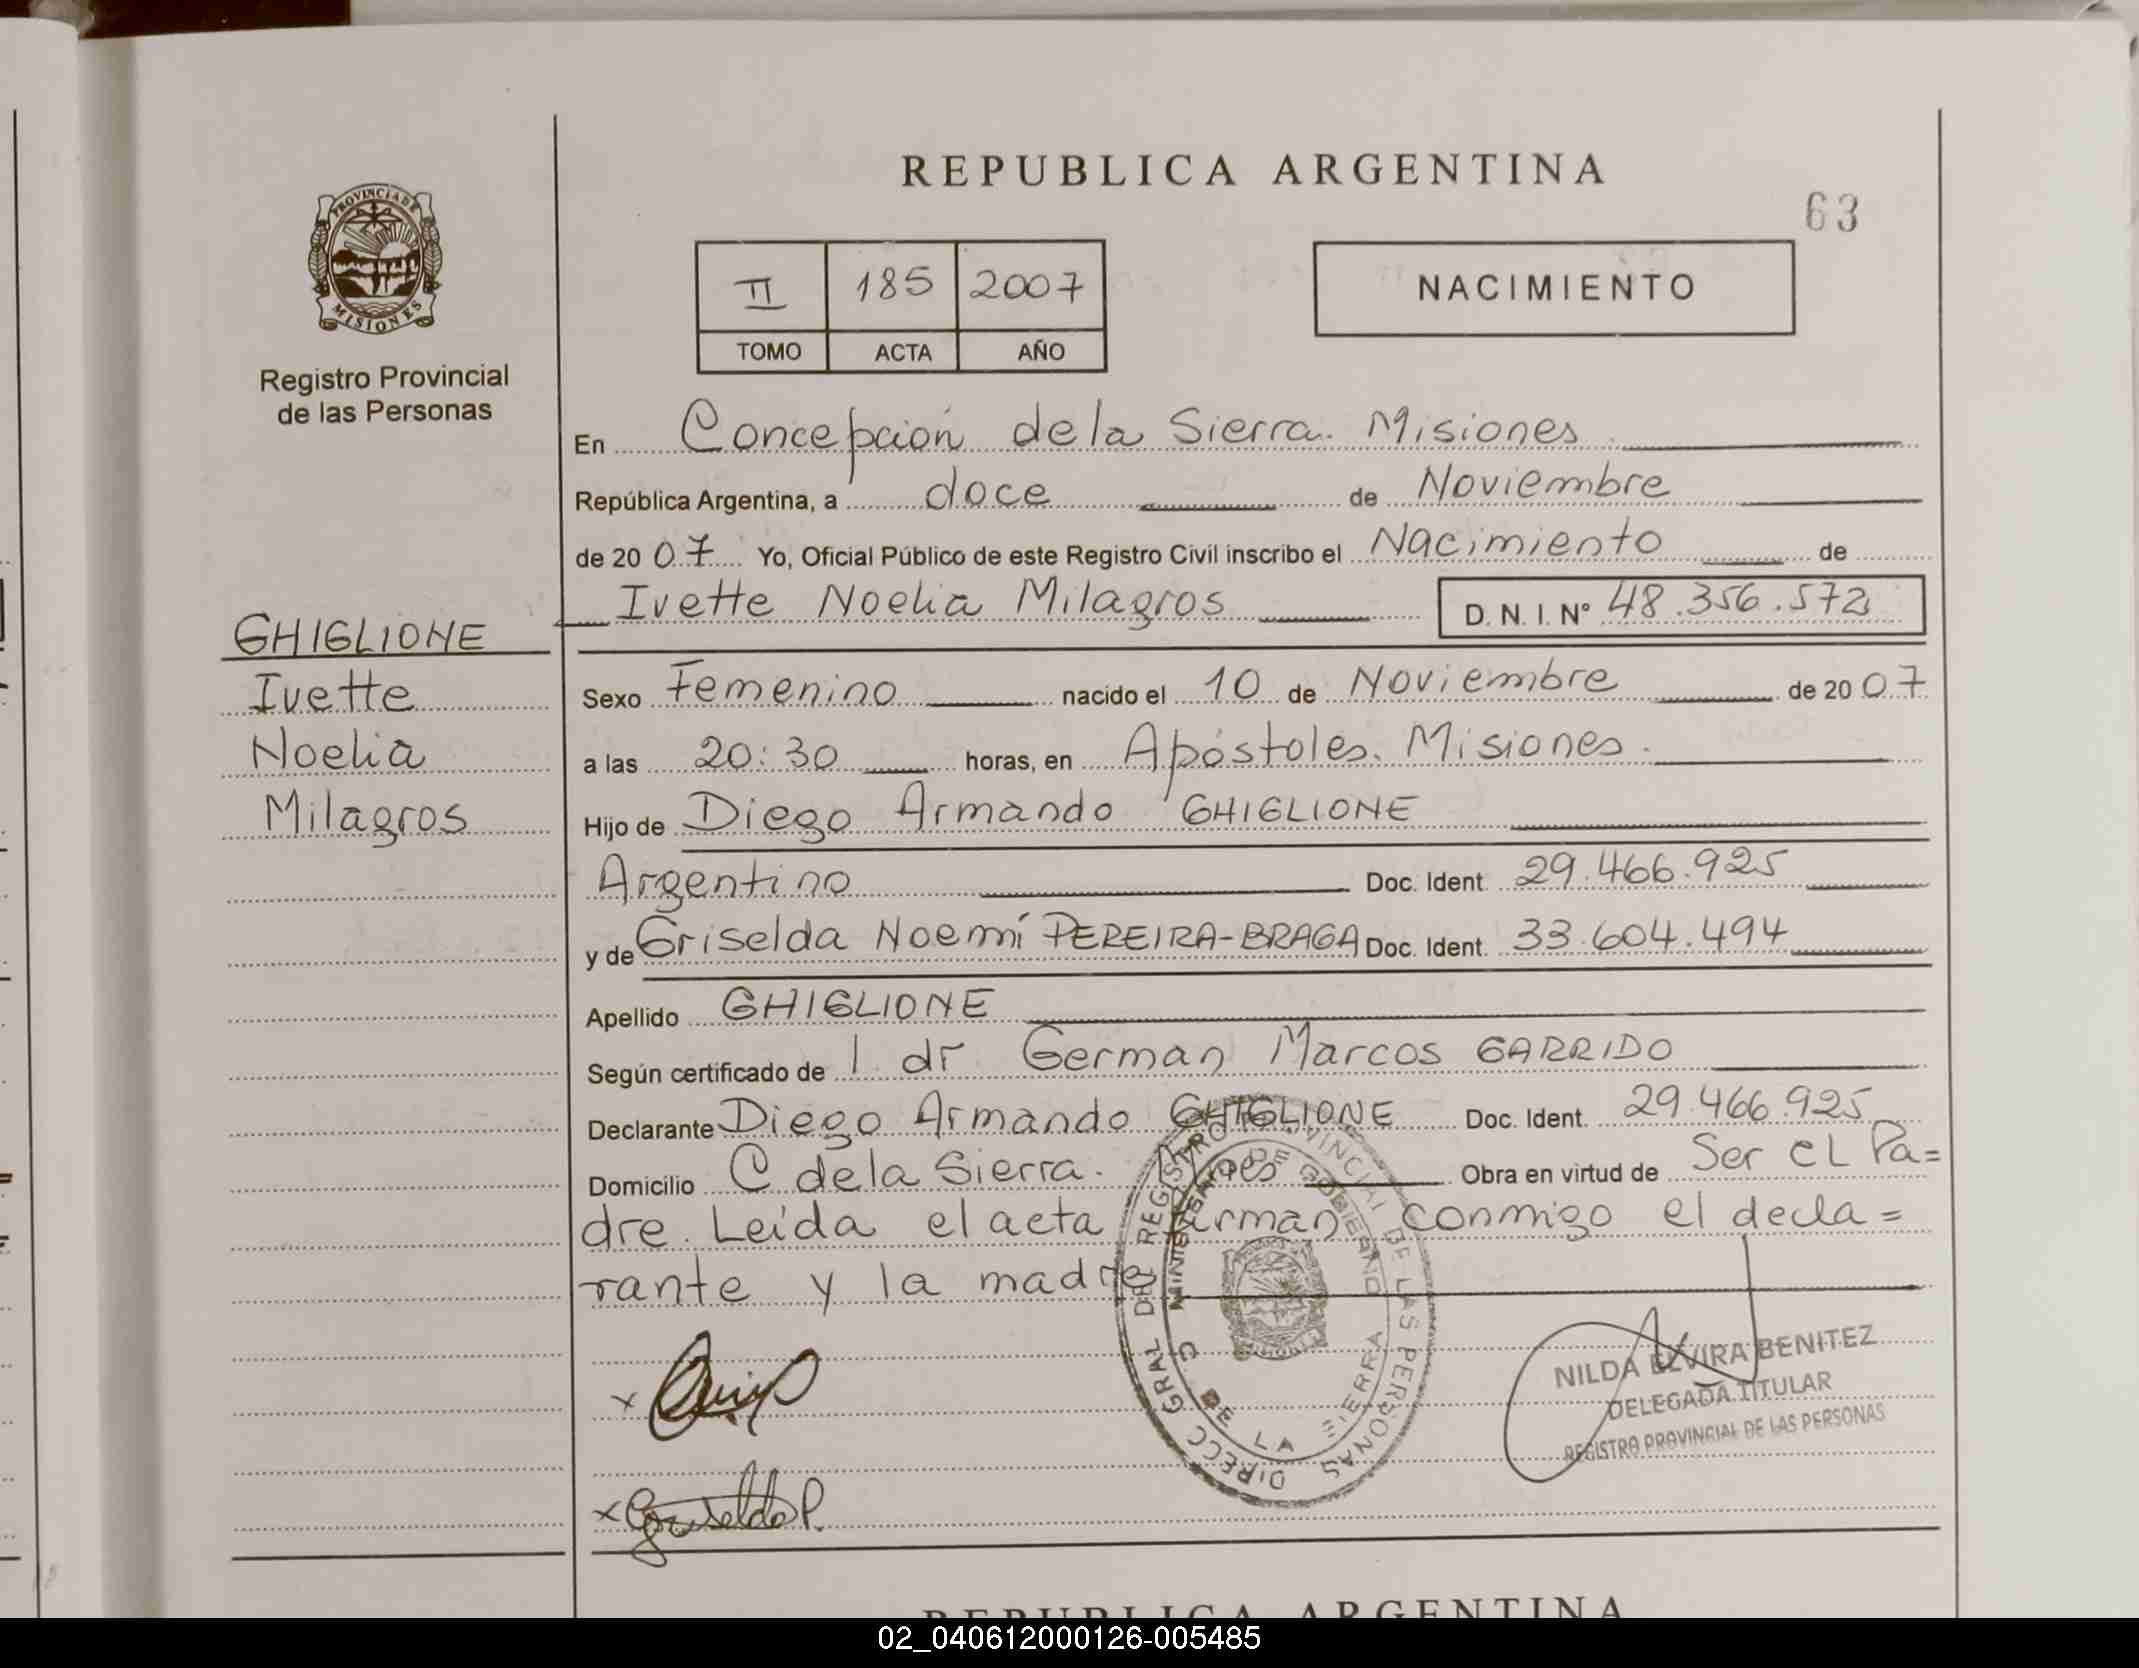 REPUBLICA ARGENTINA
63
PROVINCIA DE MISIONES
Registro Provincial
de las Personas
II 185 2007
TOMO ACTA AÑO
NACIMIENTO
En Concepción de la Sierra. Misiones
República Argentina, a doce de Noviembre
de 20 07 Yo, Oficial Público de este Registro Civil inscribo el Nacimiento de
Ivette Noelia Milagros D. N. I. N° 48.356.572
GHIGLIONE
Ivette
Noelia
Milagros
Sexo Femenino nacido el 10 de Noviembre de 20 07
a las 20:30 horas, en Apóstoles. Misiones.
Hijo de Diego Armando GHIGLIONE
Argentino Doc. Ident. 29.466.925
y de Griselda Noemí PEREIRA-BRAGA Doc. Ident. 33.604.494
Apellido GHIGLIONE
Según certificado de l dr German Marcos GARRIDO
Declarante Diego Armando GHIGLIONE Doc. Ident. 29.466.925
Domicilio C de la Sierra. Mnes Obra en virtud de Ser el Pa=
dre. Leída el acta firman conmigo el decla=
rante y la madre
DIRECC GRAL DEL REGISTRO PROVINCIAL DE LAS PERSONAS
MINISTERIO DE GOBIERNO
C DE LA SIERRA
NILDA ELVIRA BENITEZ
DELEGADA TITULAR
REGISTRO PROVINCIAL DE LAS PERSONAS
x
x Griselda P.
REPUBLICA ARGENTINA
02_040612000126-005485